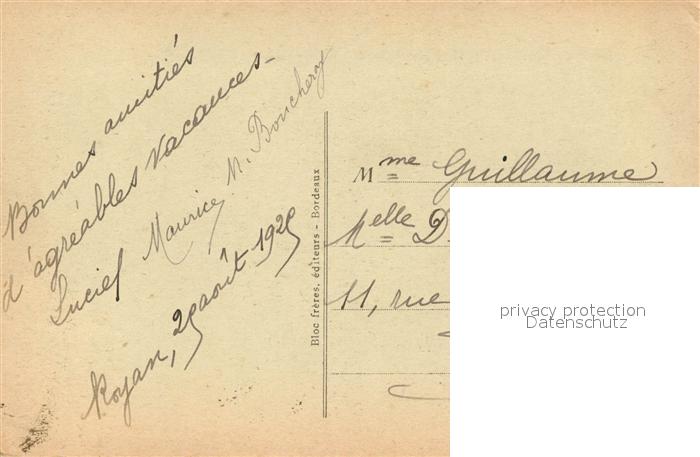 Bonnes amitiés
d'agréables vacances -
Lucie Maurice M. Boucheray
Royan, 29 août 1929
Bloc frères, éditeurs - Bordeaux
Mme Guillaume
Melle D
11, rue
privacy protection
Datenschutz